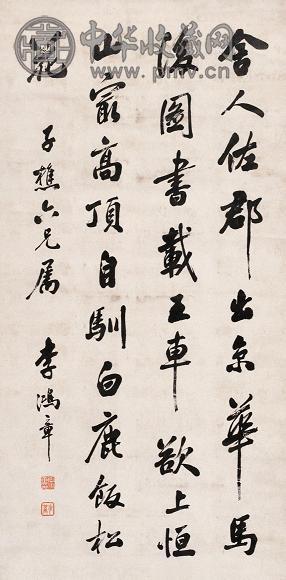 中华收藏网
www.pmv.cn
舍人佐郡出京華馬
後圖書載五車欲上恒
山最高頂自馴白鹿飯松
花
子樵六兄屬
李鴻章